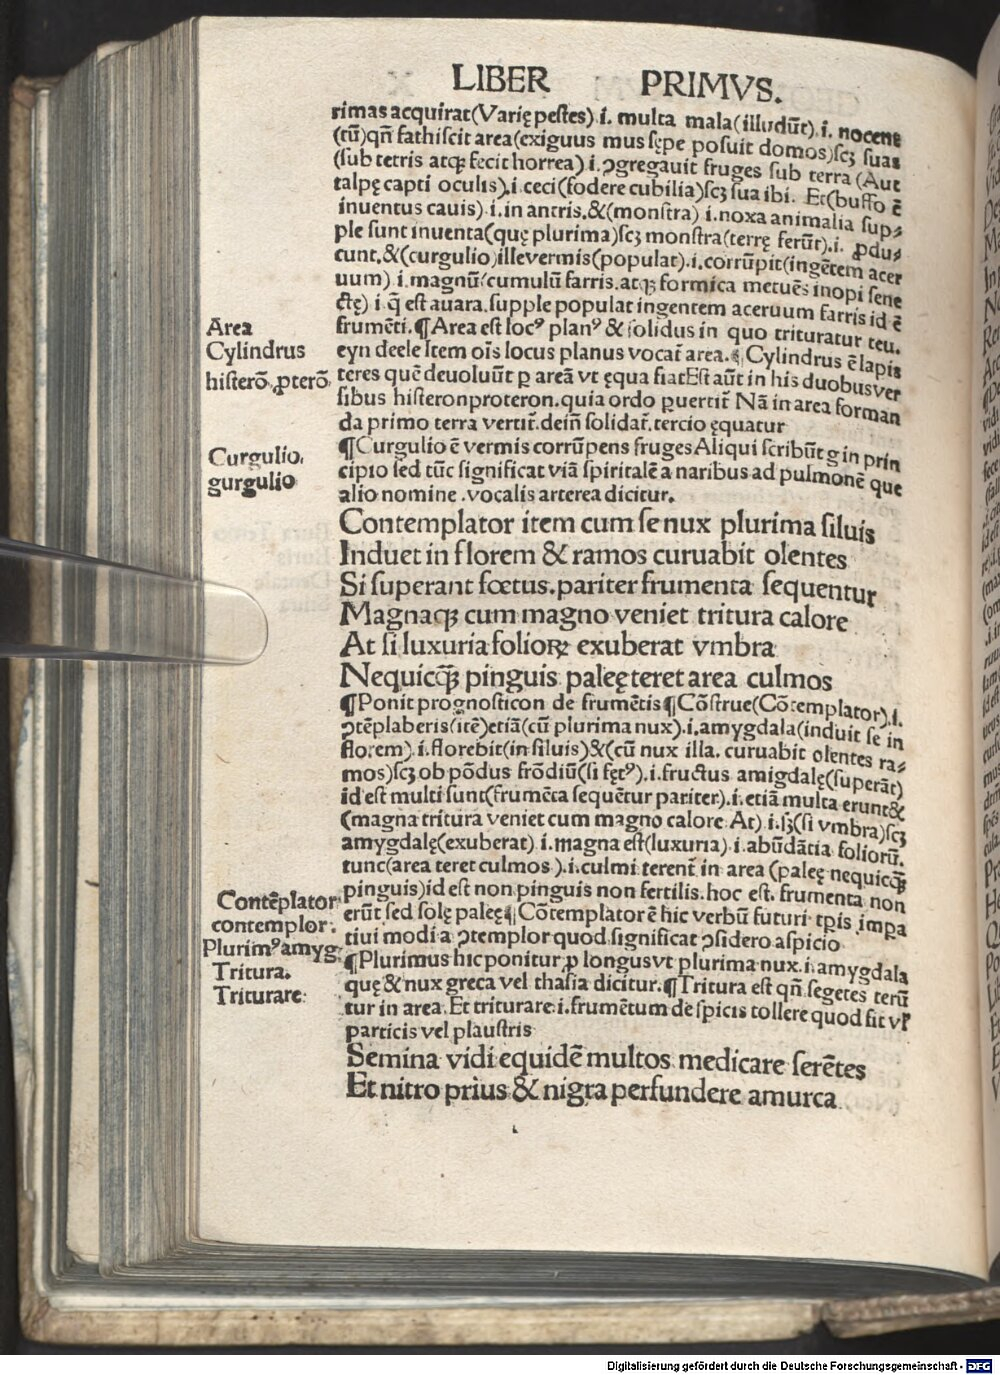 LIBER PRIMVS.
rimas acquirat(Varię pestes) .i. multa mala(illudūt) .i. nocent
(tū)qñ fathiscit area(exiguus mus sępe posuit domos)scꝫ suas
(sub tetris atqꝫ fecit horrea) .i. ɔgregauit fruges sub terra (Aut
talpę capti oculis).i.ceci(fodere cubilia)scꝫ sua ibi. Et(buffo ē
inuentus cauis) .i. in antris.&(monstra) .i. noxa animalia sup⸗
ple sunt inuenta(quę plurima)scꝫ monstra(terrę ferūt).i. ꝓdu⸗
cunt.&(curgulio)ille vermis(populat).i.corrūpit(ingētem acer
uum) .i.magnū cumulū farris.atqꝫ formica metuēs inopi sene
ctę) .i q̄ est auara.supple populat ingentem aceruum farris id ē
frumēti.¶Area est locꝰ planꝰ & solidus in quo trituratur teu.
Area
Cylindrus
eyn deele Item oīs locus planus vocat̄ area.¶ Cylindrus ē lapis
histerō.ꝓterō.
teres quē deuoluūt ꝑ areā vt ęqua fiat Est aūt in his duobus ver
sibus histeron proteron.quia ordo ꝑuertit̄ Nā in area forman
da primo terra vertit̄.dein̄ solidat̄.tercio ęquatur
Curgulio.
gurgulio
¶Curgulio ē vermis corrūpens fruges Aliqui scribūt g in prin
cipio sed tūc significat viā spiritalē a naribus ad pulmonē que
alio nomine .vocalis arterea dicitur.
Contemplator item cum se nux plurima siluis
Induet in florem & ramos curuabit olentes
Si superant fœtus.pariter frumenta sequentur
Magnaqꝫ cum magno veniet tritura calore
At si luxuria folioꝝ exuberat vmbra
Nequicq̄ꝫ pinguis paleę teret area culmos
¶Ponit prognosticon de frumētis¶Cōstrue(Cōtemplator).i.
ɔtēplaberis(itē)etiā(cū plurima nux).i.amygdala(induit se in
florem) .i.florebit(in siluis)&(cū nux illa. curuabit olentes ra⸗
mos)scꝫ ob pōdus frōdiū(si fętꝰ).i.fructus amigdalę(superāt)
id est multi sunt(frumēta sequētur pariter).i.etiā multa erunt&
(magna tritura veniet cum magno calore At) .i.sꝫ(si vmbra)scꝫ
amygdalę(exuberat) .i.magna est(luxuria) .i.abūdātia foliorū.
tunc(area teret culmos ).i.culmi terent̄ in area (paleę nequicq̄ꝫ
pinguis)id est non pinguis non fertilis.hoc est. frumenta non
Contēplator
contemplor.
erūt sed solę paleę¶ Cōtemplator ē hic verbū futuri tp̄is impa
tiui modi a ɔtemplor quod significat ɔsidero aspicio
Plurimꝰ amyg.
Tritura.
Triturare:
¶Plurimus hic ponitur ꝓ longus vt plurima nux.i.amygdala
quę & nux greca vel thasia dicitur.¶Tritura est qñ segetes terū
tur in area.Et triturare.i.frumētum de spicis tollere quod fit vl
particis vel plaustris
Semina vidi equidē multos medicare serētes
Et nitro prius & nigra perfundere amurca
Digitalisierung gefördert durch die Deutsche Forschungsgemeinschaft - DFG